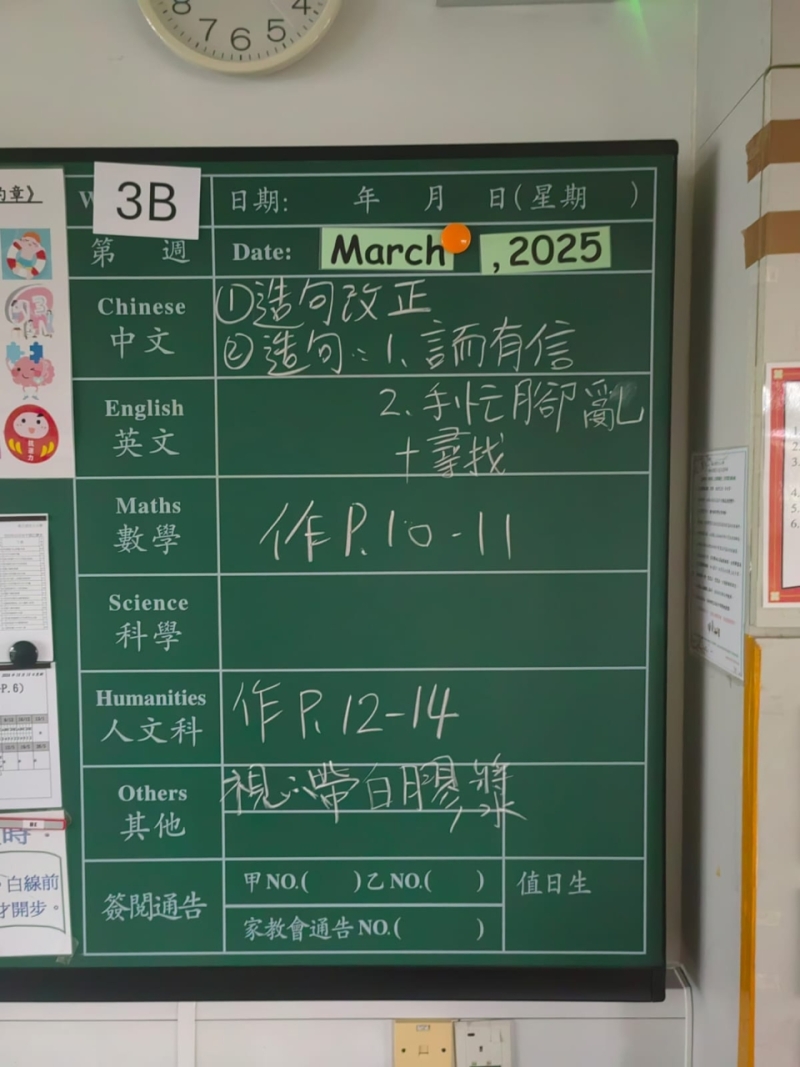 8 7 6 5 4
約章》
3B
日期: 年 月 日(星期 )
第 週
Date: March , 2025
Chinese
中文
①造句改正
②造句：1. 言而有信
English
英文
2. 手忙腳亂
+尋找
Maths
數學
作 P.10-11
Science
科學
Humanities
人文科
作 P.12-14
Others
其他
視：帶白膠漿
簽閱通告
甲 NO.( )乙 NO.( )
家教會通告 NO.( )
值日生
P.6)
時:
白線前
才開步。